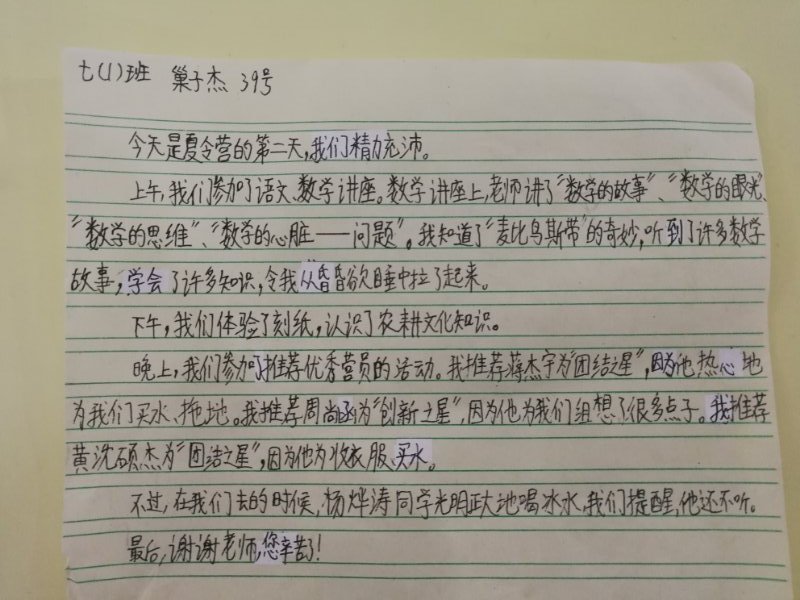 七(1)班 巢子杰 39号
今天是夏令营的第二天,我们精力充沛。
上午,我们参加了语文、数学讲座。数学讲座上,老师讲了“数学的故事”、“数学的眼光”、
“数学的思维”、“数学的心脏——问题”。我知道了“麦比乌斯带”的奇妙,听到了许多数学
故事,学会了许多知识,令我从昏昏欲睡中拉了起来。
下午,我们体验了刻纸,认识了农耕文化知识。
晚上,我们参加了推荐优秀营员的活动。我推荐蒋杰宇为“团结之星”,因为他热心地
为我们买水、拖地。我推荐周尚函为“创新之星”,因为他为我们组想了很多点子。我推荐
黄沈硕杰为“团结之星”,因为他为收衣服、买水。
不过,在我们去的时候,杨烨涛同学光明正大地喝冰水,我们提醒,他还不听。
最后,谢谢老师,您辛苦了!